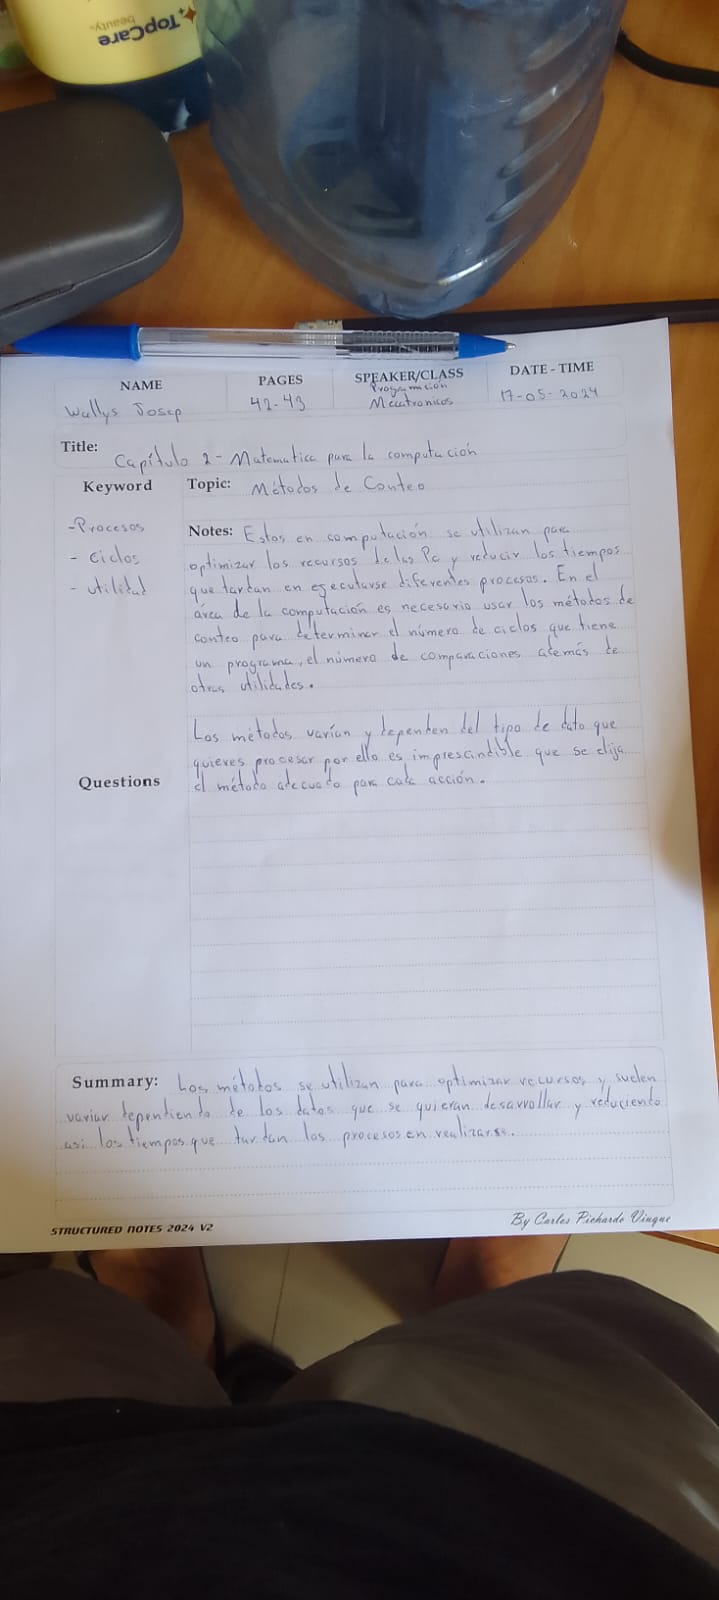 TopCare
beauty
NAME
PAGES
SPEAKER/CLASS
DATE - TIME
Wallys Josep
42-43
Programción
Mecatronicos
17-05-2024
Title: Capítulo 2 - Matematica para la computación
Keyword
Topic: Métodos de Conteo
-Procesos
- Ciclos
- utilidad
Notes: Estos en computación se utilizan para
optimizar los recursos de las Pc y reducir los tiempos
que tardan en ejecutarse diferentes procesos. En el
área de la computación es necesario usar los métodos de
conteo para determinar el número de ciclos que tiene
un programa, el número de comparaciones además de
otras utilidades.
Los métodos varían y dependen del tipo de dato que
quieres procesar por ello es imprescindible que se elija
el método adecuado para cada acción.
Questions
Summary: Los métodos se utilizan para optimizar recursos y suelen
variar dependiendo de los datos que se quieran desarrollar y reduciendo
asi los tiempos que tardan los procesos en realizarse.
STRUCTURED NOTES 2024 V2
By Carlos Pichardo Viuque